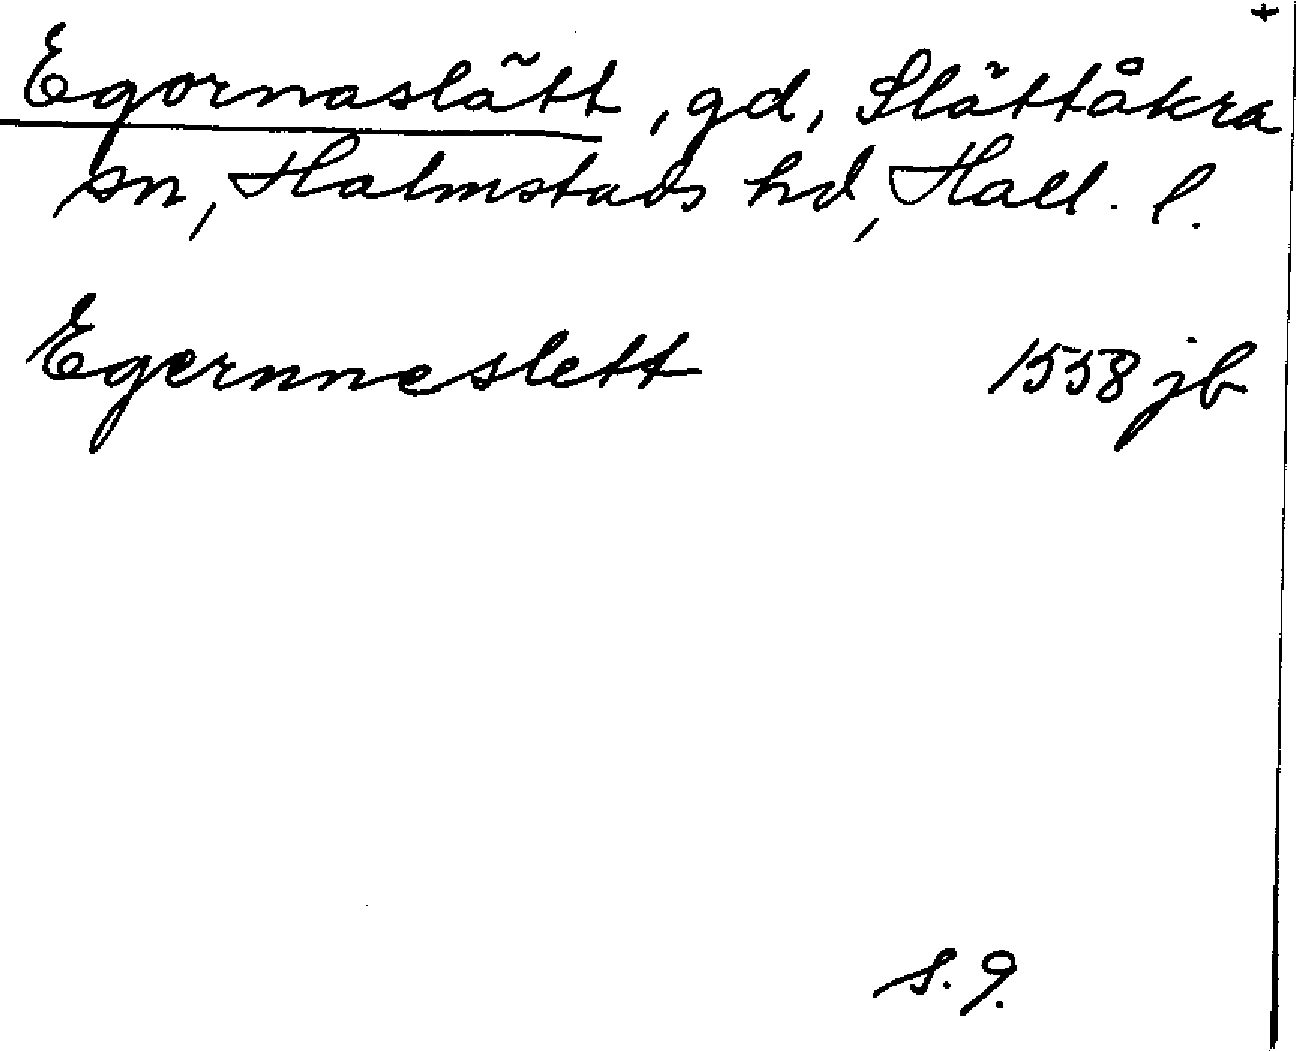 +
Egornaslätt, gd, Slättåkra
sn, Halmstads hd, Hall. l.
Egernneslett 1558 jb
s. 9.